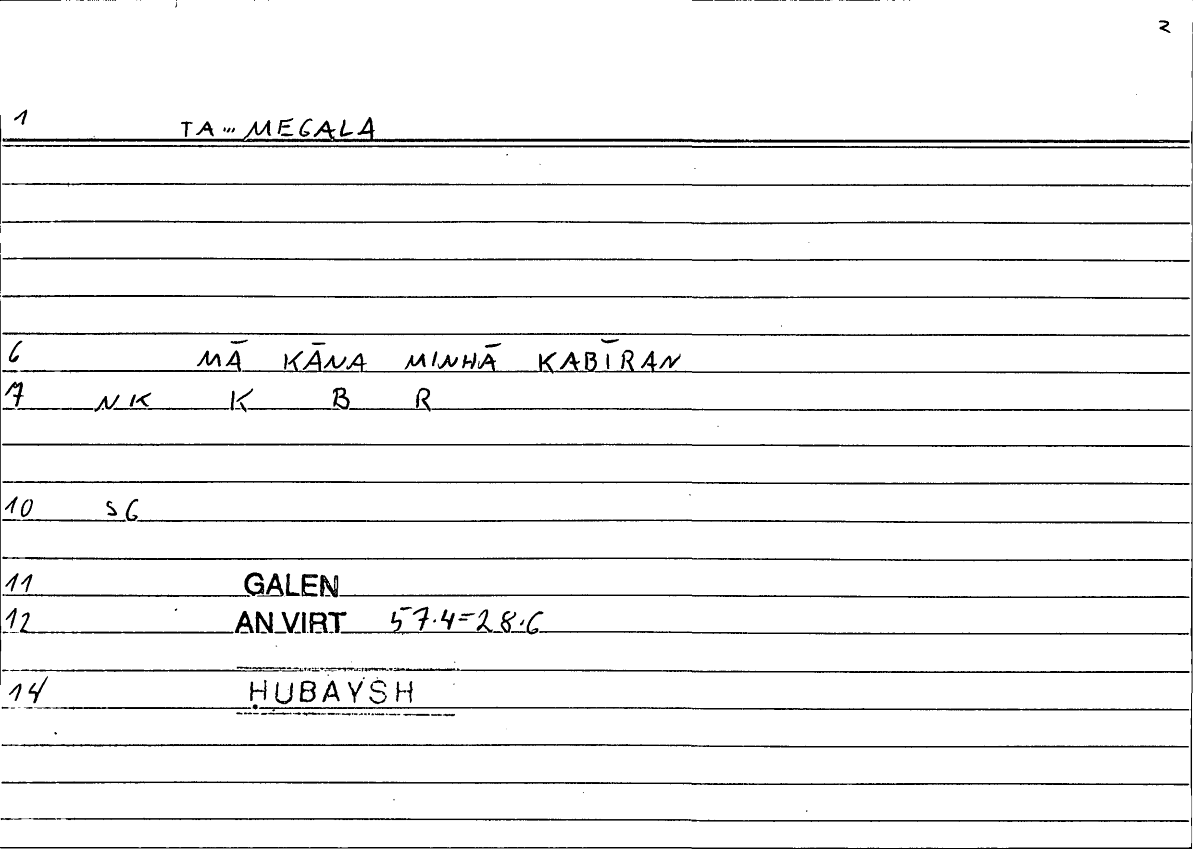 2
1 TA … MEGALA
6 MĀ KĀNA MINHĀ KABĪRAN
7 NK K B R
10 SG
11 GALEN
12 AN VIRT 57.4=28.6
14 ḤUBAYSH